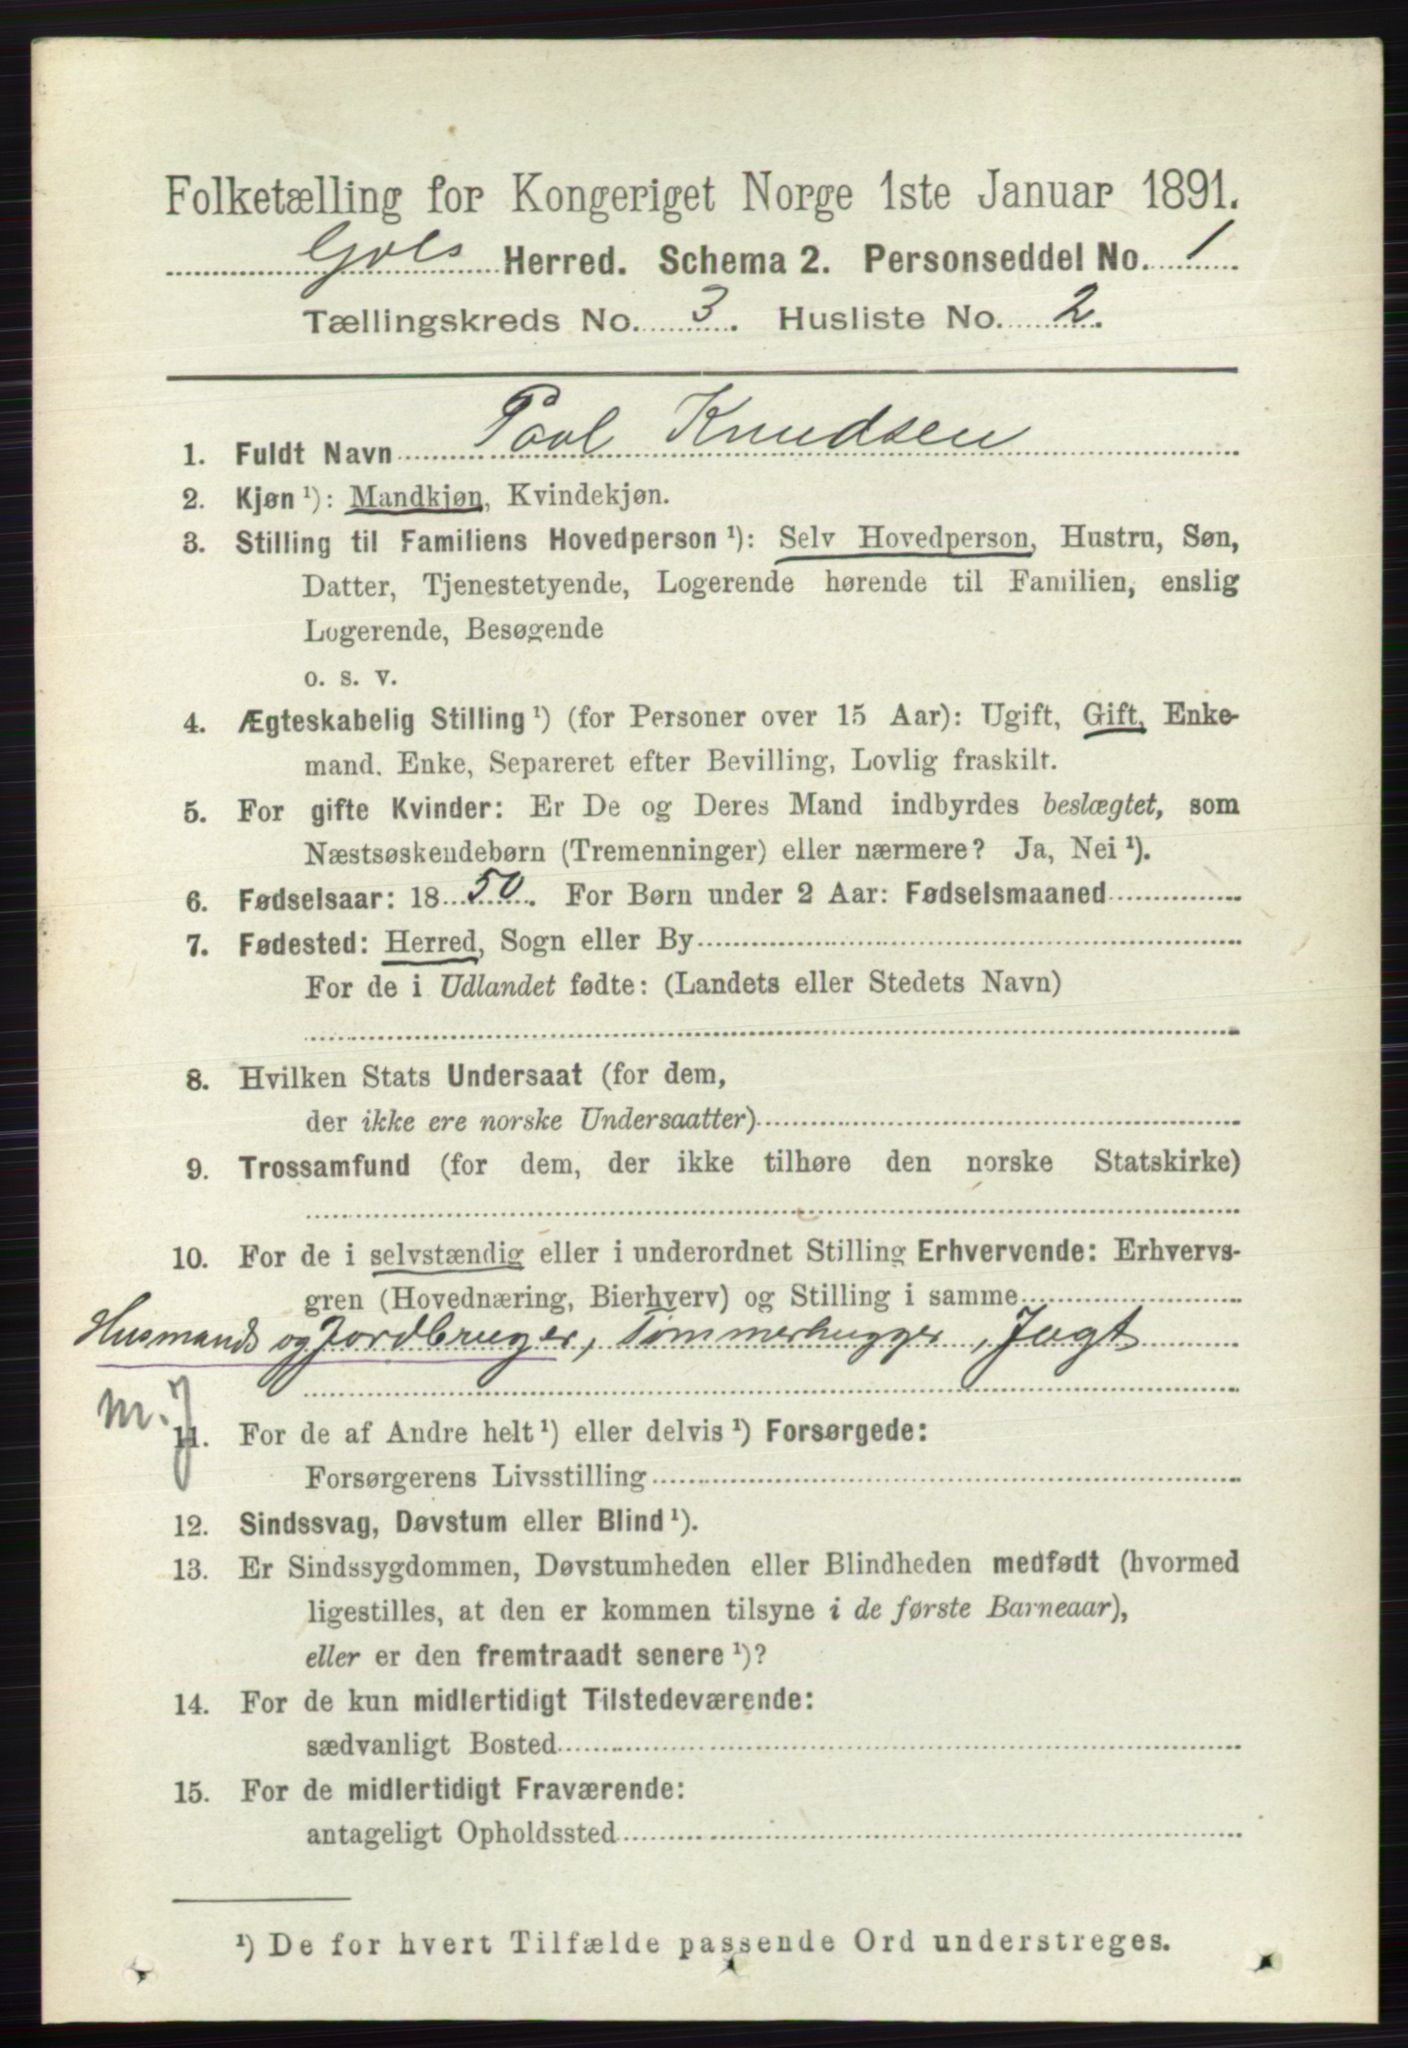 Folketælling for Kongeriget Norge 1ste Januar 1891.
Gols Herred. Schema 2. Personseddel No. 1
Tællingskreds No. 3. Husliste No. 2.
1. Fuldt Navn Paal Knudsen
2. Kjøn ¹): Mandkjøn, Kvindekjøn.
3. Stilling til Familiens Hovedperson ¹): Selv Hovedperson, Hustru, Søn,
Datter, Tjenestetyende, Logerende hørende til Familien, enslig
Logerende, Besøgende
o. s. v.
4. Ægteskabelig Stilling ¹) (for Personer over 15 Aar): Ugift, Gift, Enke-
mand, Enke, Separeret efter Bevilling, Lovlig fraskilt.
5. For gifte Kvinder: Er De og Deres Mand indbyrdes beslægtet, som
Næstsøskendebørn (Tremenninger) eller nærmere? Ja, Nei ¹).
6. Fødselsaar: 1850. For Børn under 2 Aar: Fødselsmaaned
7. Fødested: Herred, Sogn eller By
For de i Udlandet fødte: (Landets eller Stedets Navn)
8. Hvilken Stats Undersaat (for dem,
der ikke ere norske Undersaatter)
9. Trossamfund (for dem, der ikke tilhøre den norske Statskirke)
10. For de i selvstændig eller i underordnet Stilling Erhvervende: Erhvervs-
gren (Hovednæring, Bierhverv) og Stilling i samme
Husmands og Jordbruger, Tømmerhugger, Jagt
m. J
11. For de af Andre helt ¹) eller delvis ¹) Forsørgede:
Forsørgerens Livsstilling
12. Sindssvag, Døvstum eller Blind ¹).
13. Er Sindssygdommen, Døvstumheden eller Blindheden medfødt (hvormed
ligestilles, at den er kommen tilsyne i de første Barneaar),
eller er den fremtraadt senere ¹)?
14. For de kun midlertidigt Tilstedeværende:
sædvanligt Bosted
15. For de midlertidigt Fraværende:
antageligt Opholdssted
¹) De for hvert Tilfælde passende Ord understreges.